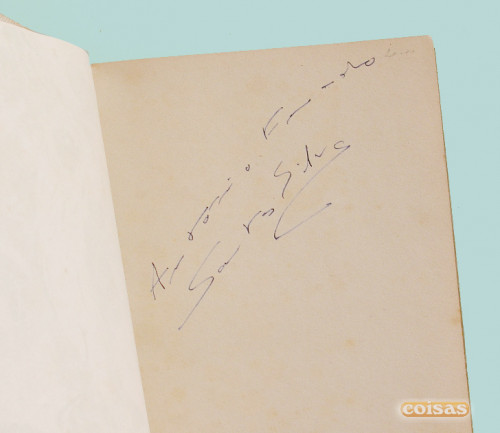 António Fernando
Santos Silva
coisas